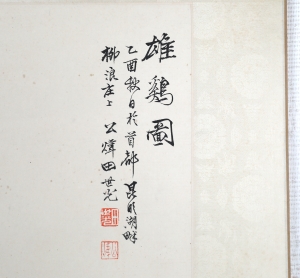 雄鷄圖
乙酉秋日於首都昆明湖畔
柳浪庄上公煒田世光